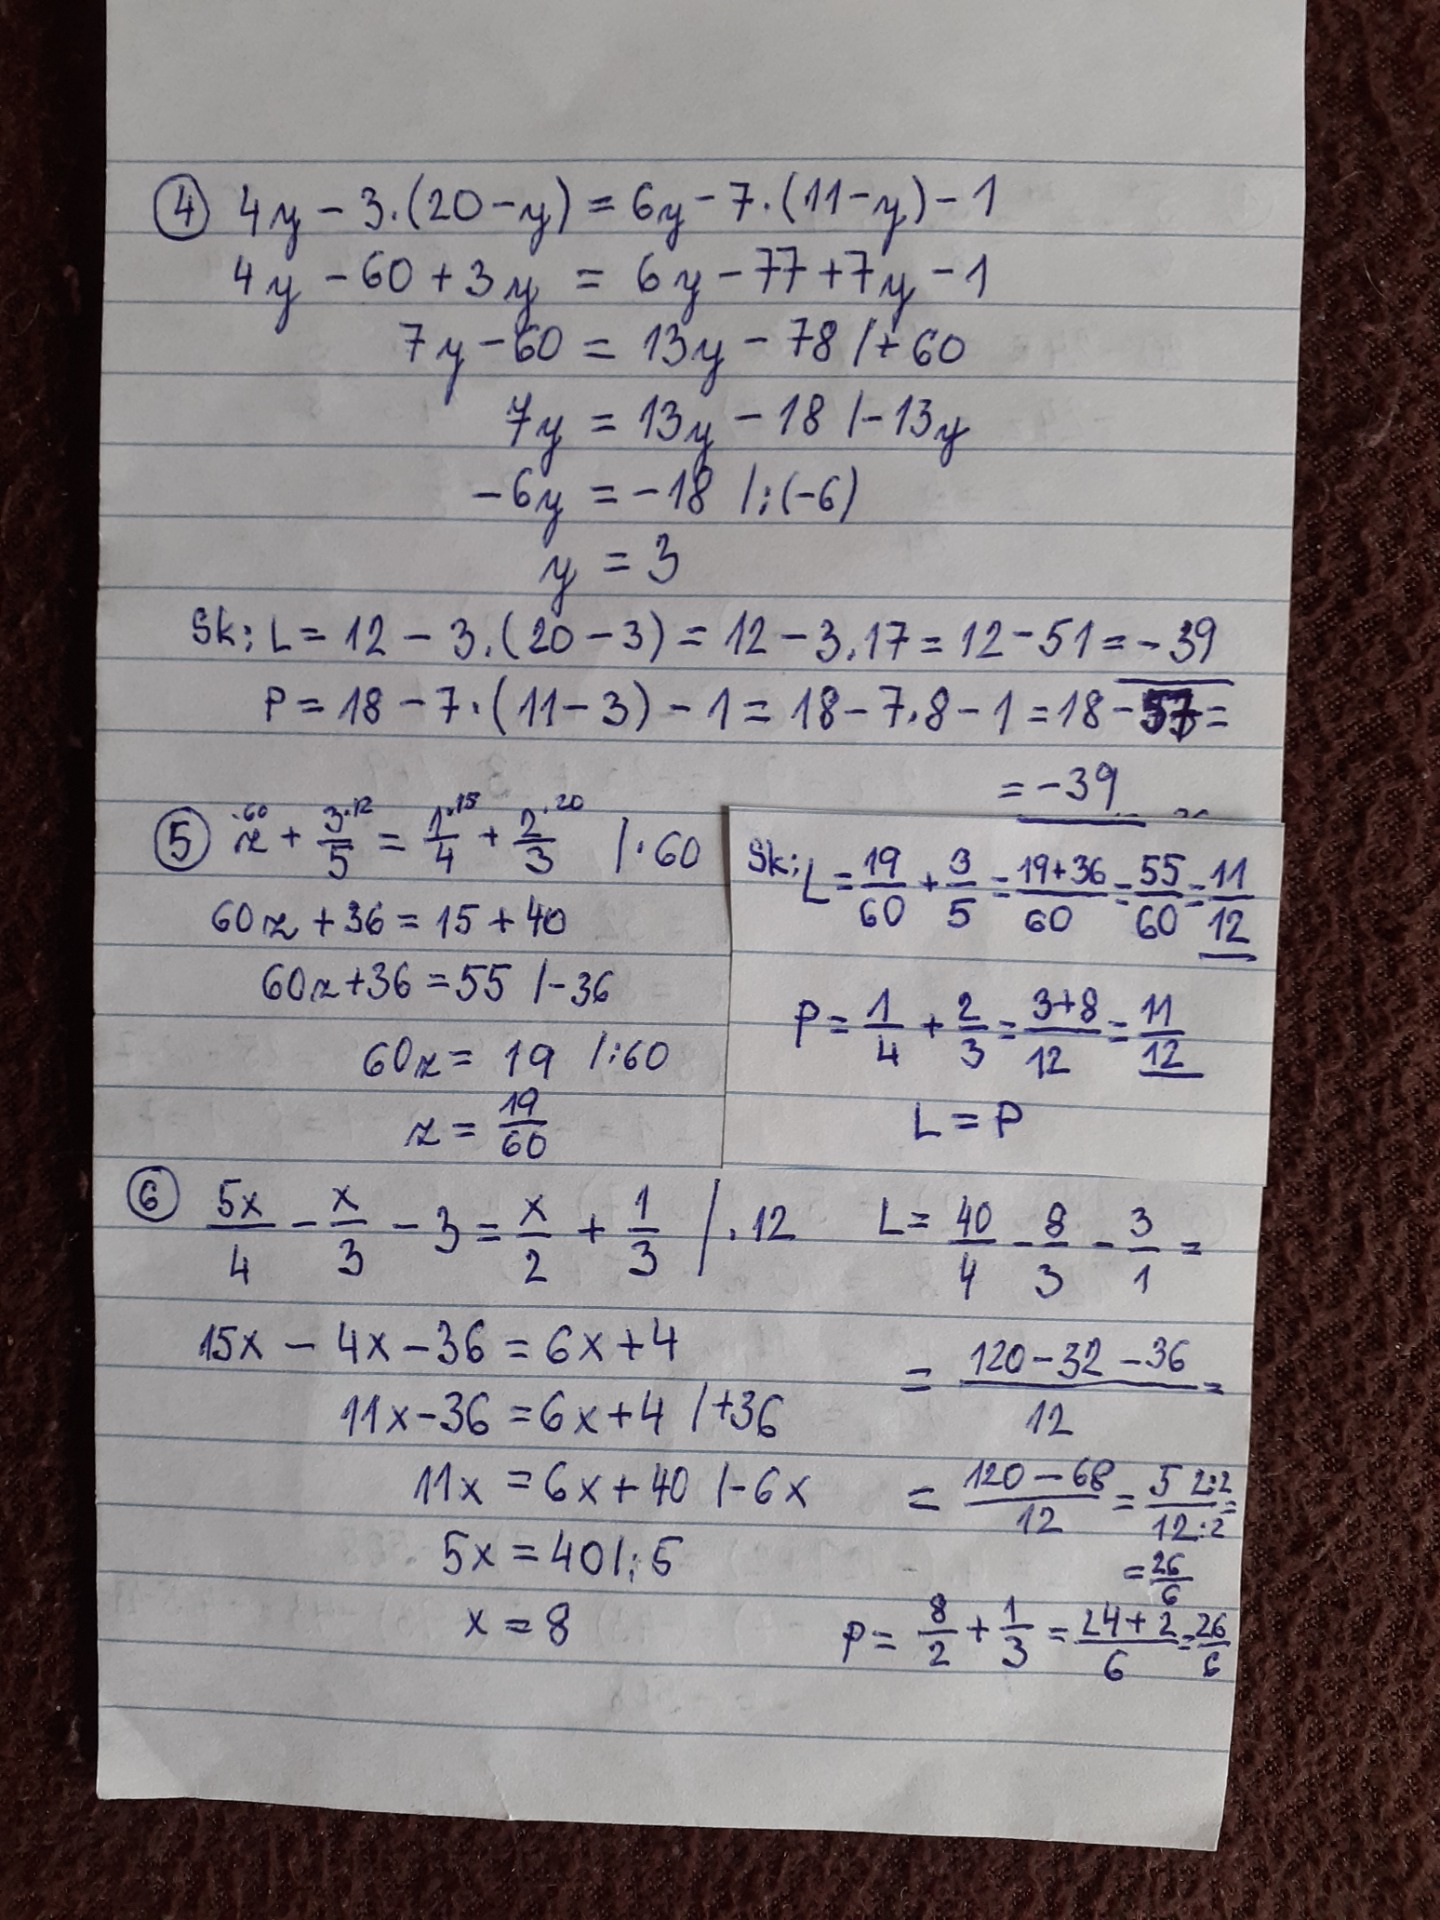 ④ 4y - 3.(20-y) = 6y - 7.(11-y) - 1
4y - 60 + 3y = 6y - 77 + 7y - 1
7y - 60 = 13y - 78 /+60
7y = 13y - 18 /-13y
-6y = -18 /:(-6)
y = 3
Sk: L = 12 - 3.(20-3) = 12 - 3.17 = 12 - 51 = -39
P = 18 - 7.(11-3) - 1 = 18 - 7.8 - 1 = 18 - 57 =
= -39
⑤ z^{.60} + 3/5^{.12} = 1/4^{.15} + 2/3^{.20} /.60
60z + 36 = 15 + 40
60z + 36 = 55 /-36
60z = 19 /:60
z = 19/60
Sk: L = 19/60 + 3/5 = (19+36)/60 = 55/60 = 11/12
P = 1/4 + 2/3 = (3+8)/12 = 11/12
L = P
⑥ 5x/4 - x/3 - 3 = x/2 + 1/3 /.12
15x - 4x - 36 = 6x + 4
11x - 36 = 6x + 4 /+36
11x = 6x + 40 /-6x
5x = 40 /:5
x = 8
L = 40/4 - 8/3 - 3/1 =
= (120 - 32 - 36)/12 =
= (120 - 68)/12 = 52:2/12:2 =
= 26/6
P = 8/2 + 1/3 = (24+2)/6 = 26/6